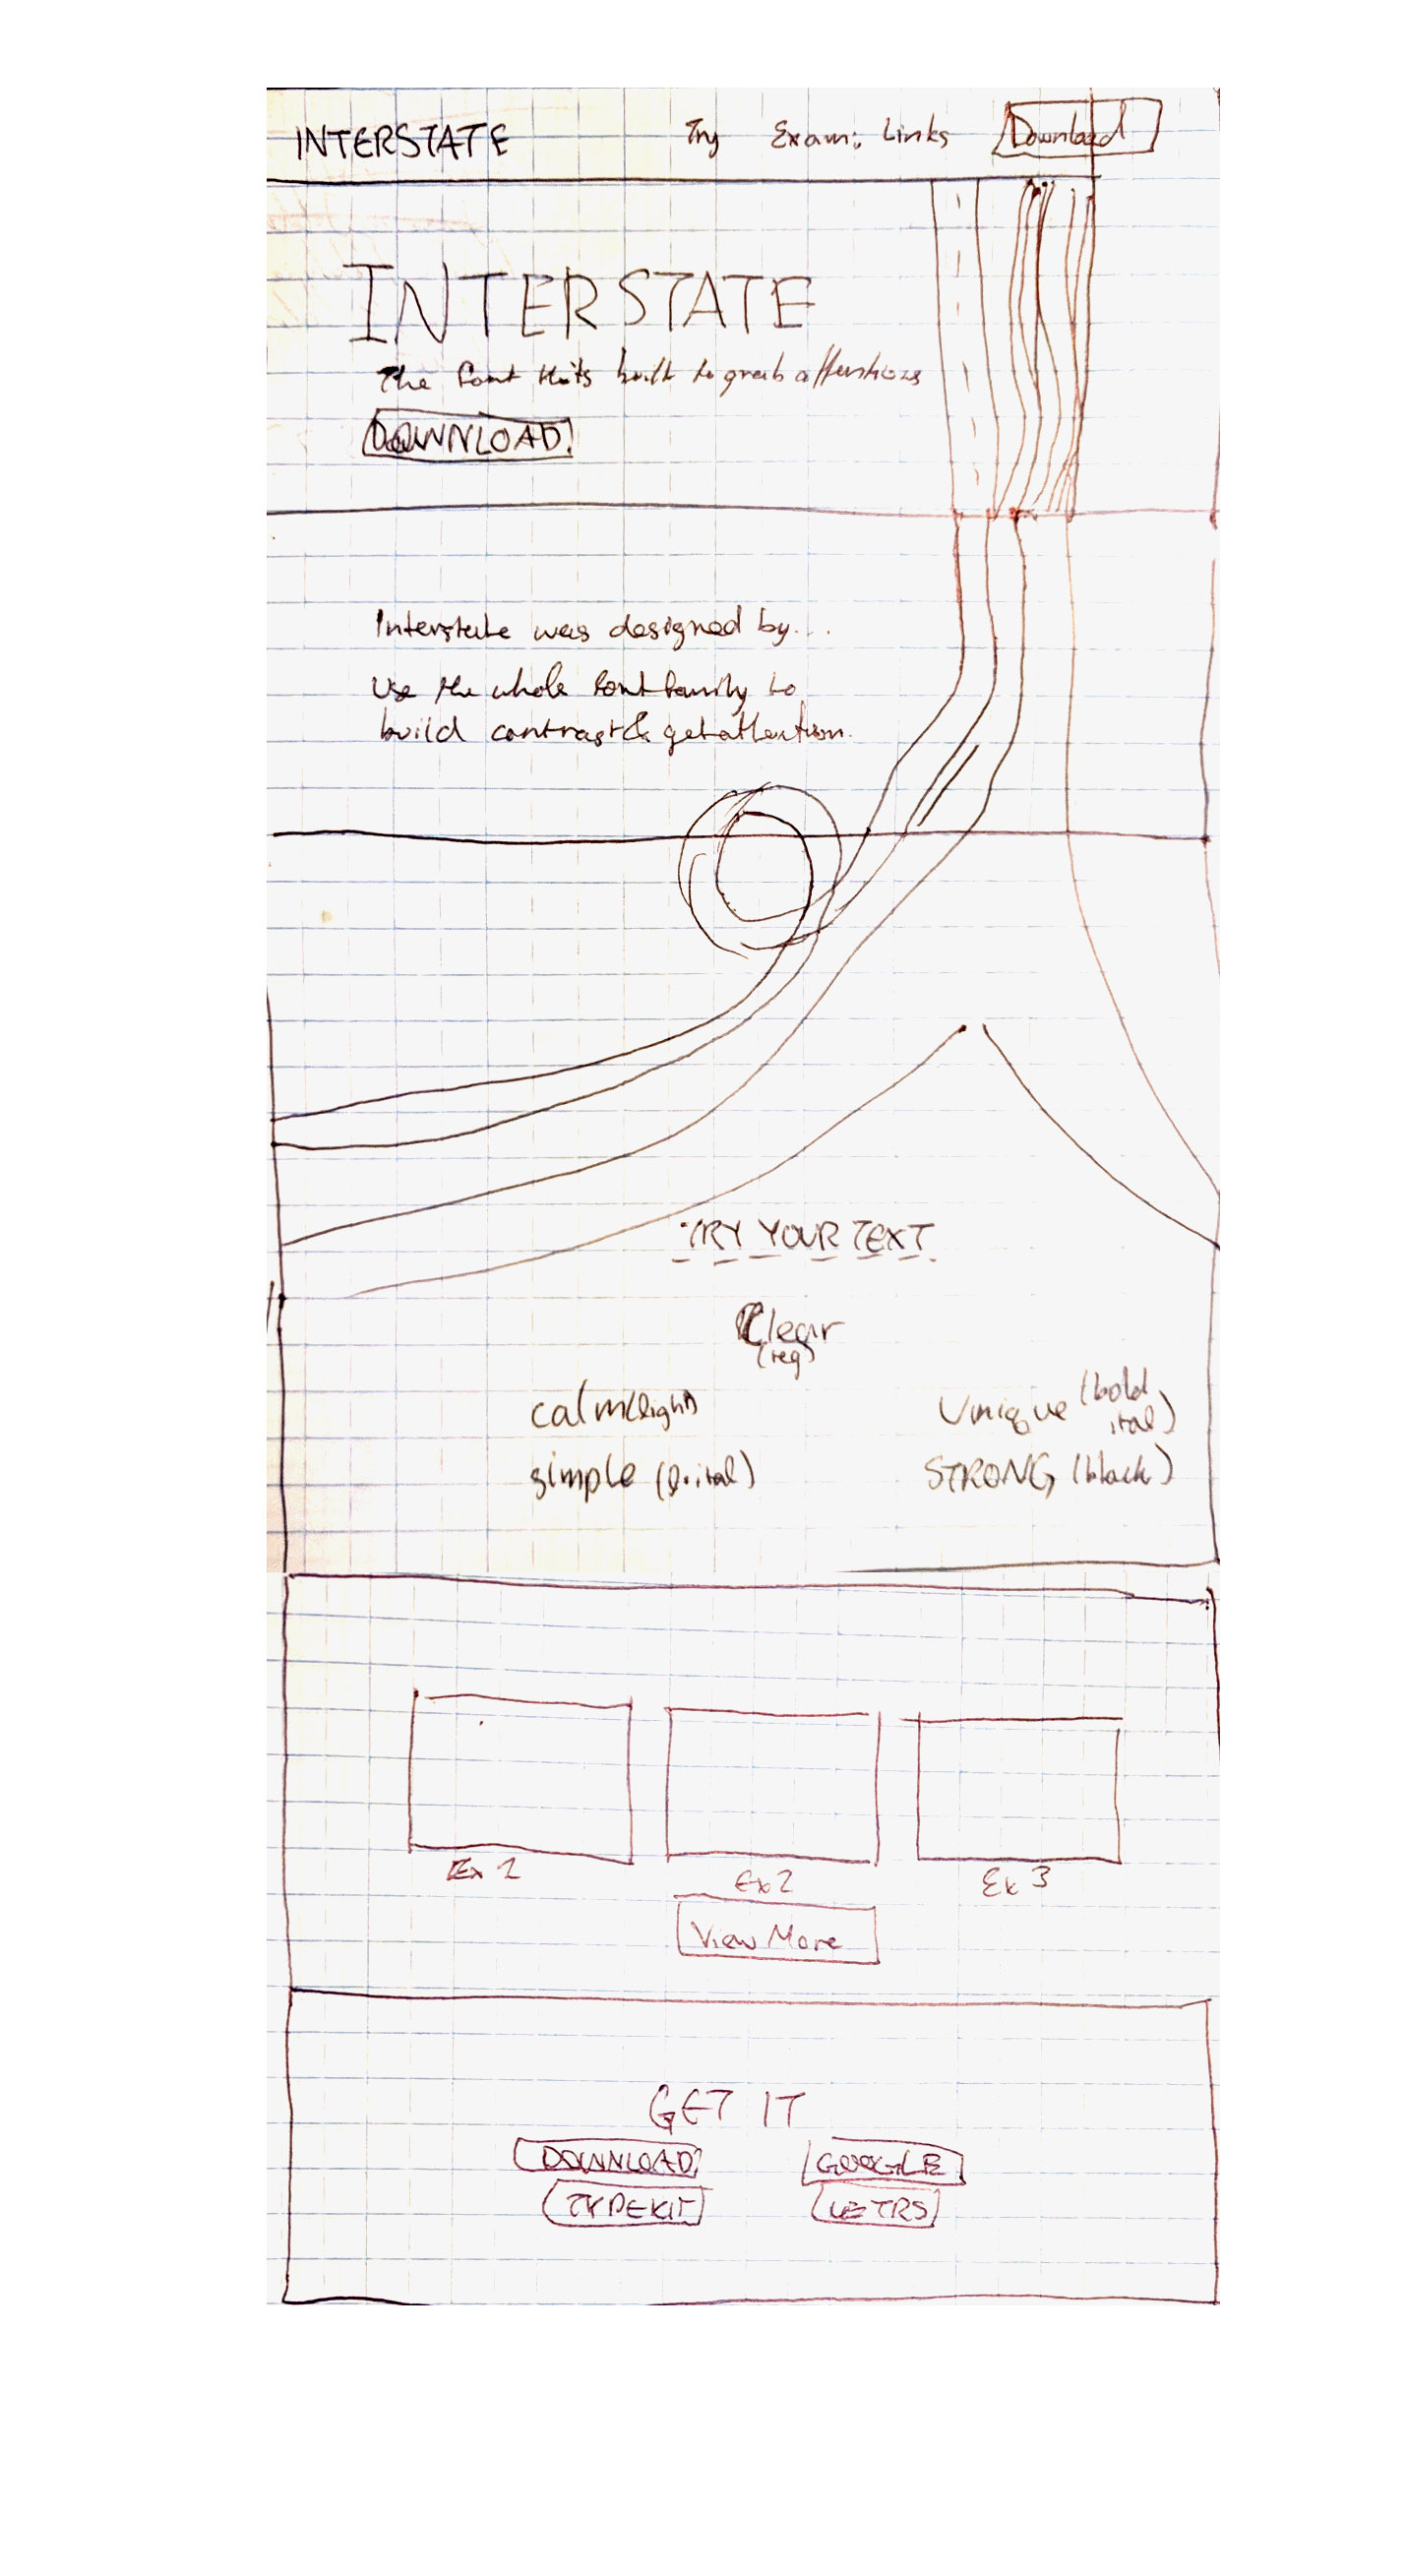 INTERSTATE
Try Exam: Links Download
INTERSTATE
The font that's built to grab attentions
DOWNLOAD
Interstate was designed by...
Use the whole font family to
build contrast & get attention.
TRY YOUR TEXT
Clear
(reg)
calm (light)
simple (l.ital)
Unique (bold
ital)
STRONG (black)
Ex 1
Ex 2
Ex 3
View More
GET IT
DOWNLOAD
GOOGLE
TYPEKIT